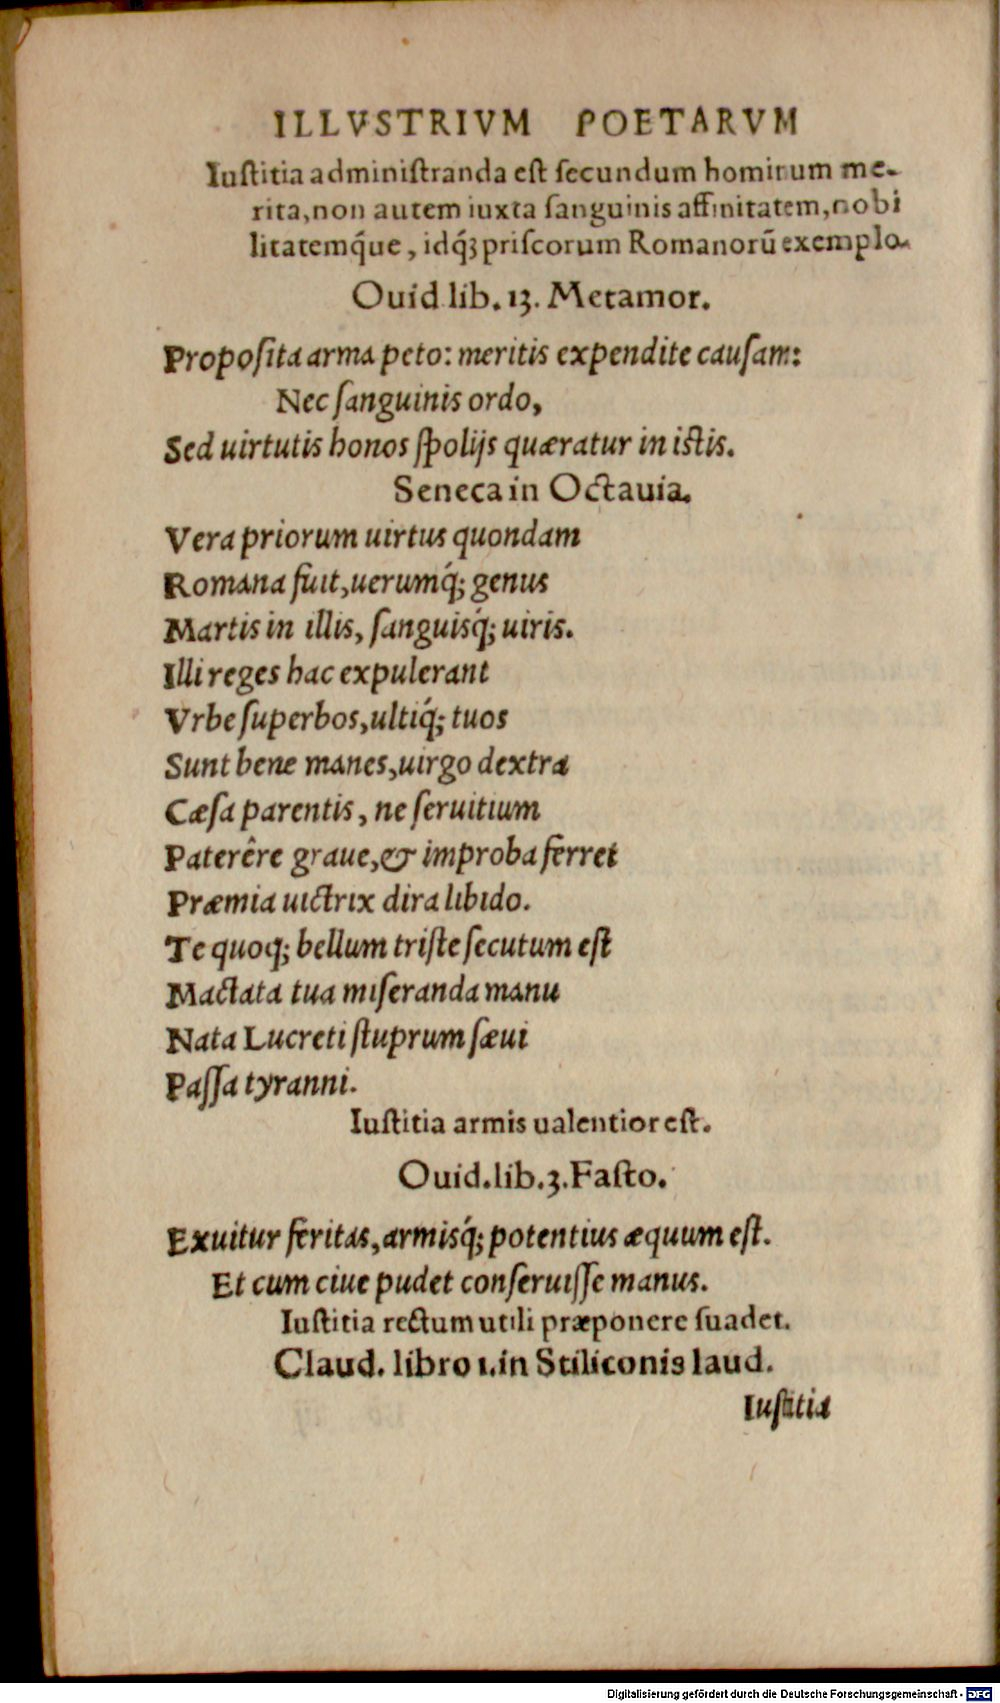 ILLVSTRIVM POETARVM
Iuſtitia adminiſtranda eſt ſecundum hominum me-
rita, non autem iuxta ſanguinis affinitatem, nobi
litatemq́ue, idq́ꝫ priſcorum Romanorũ exemplo.
Ouid lib. 13. Metamor.
Propoſita arma peto: meritis expendite cauſam:
Nec ſanguinis ordo,
Sed uirtutis honos ſpolijs quæratur in iſtis.
Seneca in Octauia.
Vera priorum uirtus quondam
Romana fuit, uerumq́; genus
Martis in illis, ſanguisq́; uiris.
Illi reges hac expulerant
Vrbe ſuperbos, ultiq́; tuos
Sunt bene manes, uirgo dextra
Cæſa parentis, ne ſeruitium
Paterêre graue, & improba ferret
Præmia uictrix dira libido.
Te quoq; bellum triſte ſecutum eſt
Mactata tua miſeranda manu
Nata Lucreti ſtuprum ſæui
Paſſa tyranni.
Iuſtitia armis ualentior eſt.
Ouid. lib. 3. Faſto.
Exuitur feritas, armisq́; potentius æquum eſt.
Et cum ciue pudet conſeruiſſe manus.
Iuſtitia rectum utili præponere ſuadet.
Claud. libro 1. in Stiliconis laud.
Iuſtitia
Digitalisierung gefördert durch die Deutsche Forschungsgemeinschaft - DFG